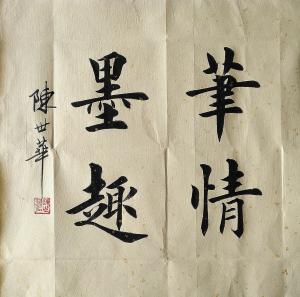 筆情
墨趣
陳世華